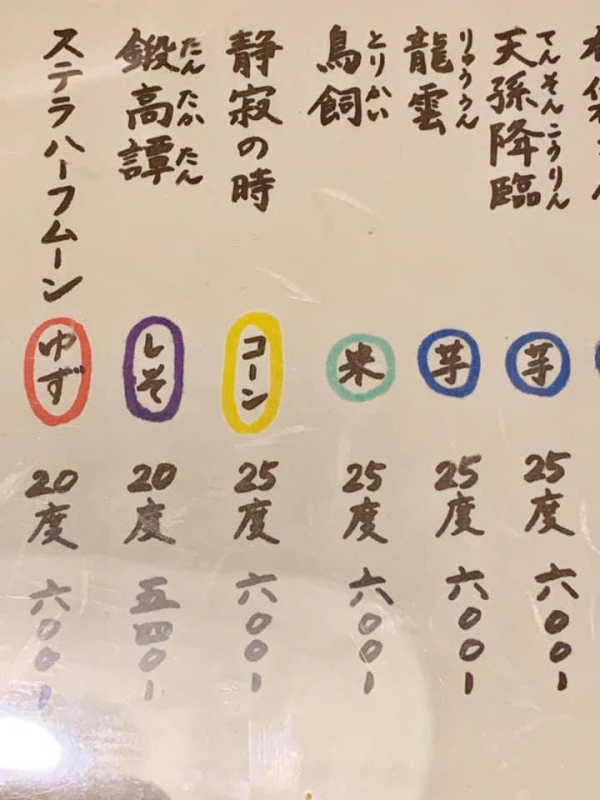 てんそんこうりん
天孫降臨 芋 25度 六〇〇ー
りゅううん
龍雲 芋 25度 六〇〇ー
とりかい
鳥飼 米 25度 六〇〇ー
静寂の時 コーン 25度 六〇〇ー
たんたかたん
鍛高譚 しそ 20度 五四〇ー
ステラハーフムーン ゆず 20度 六〇〇ー